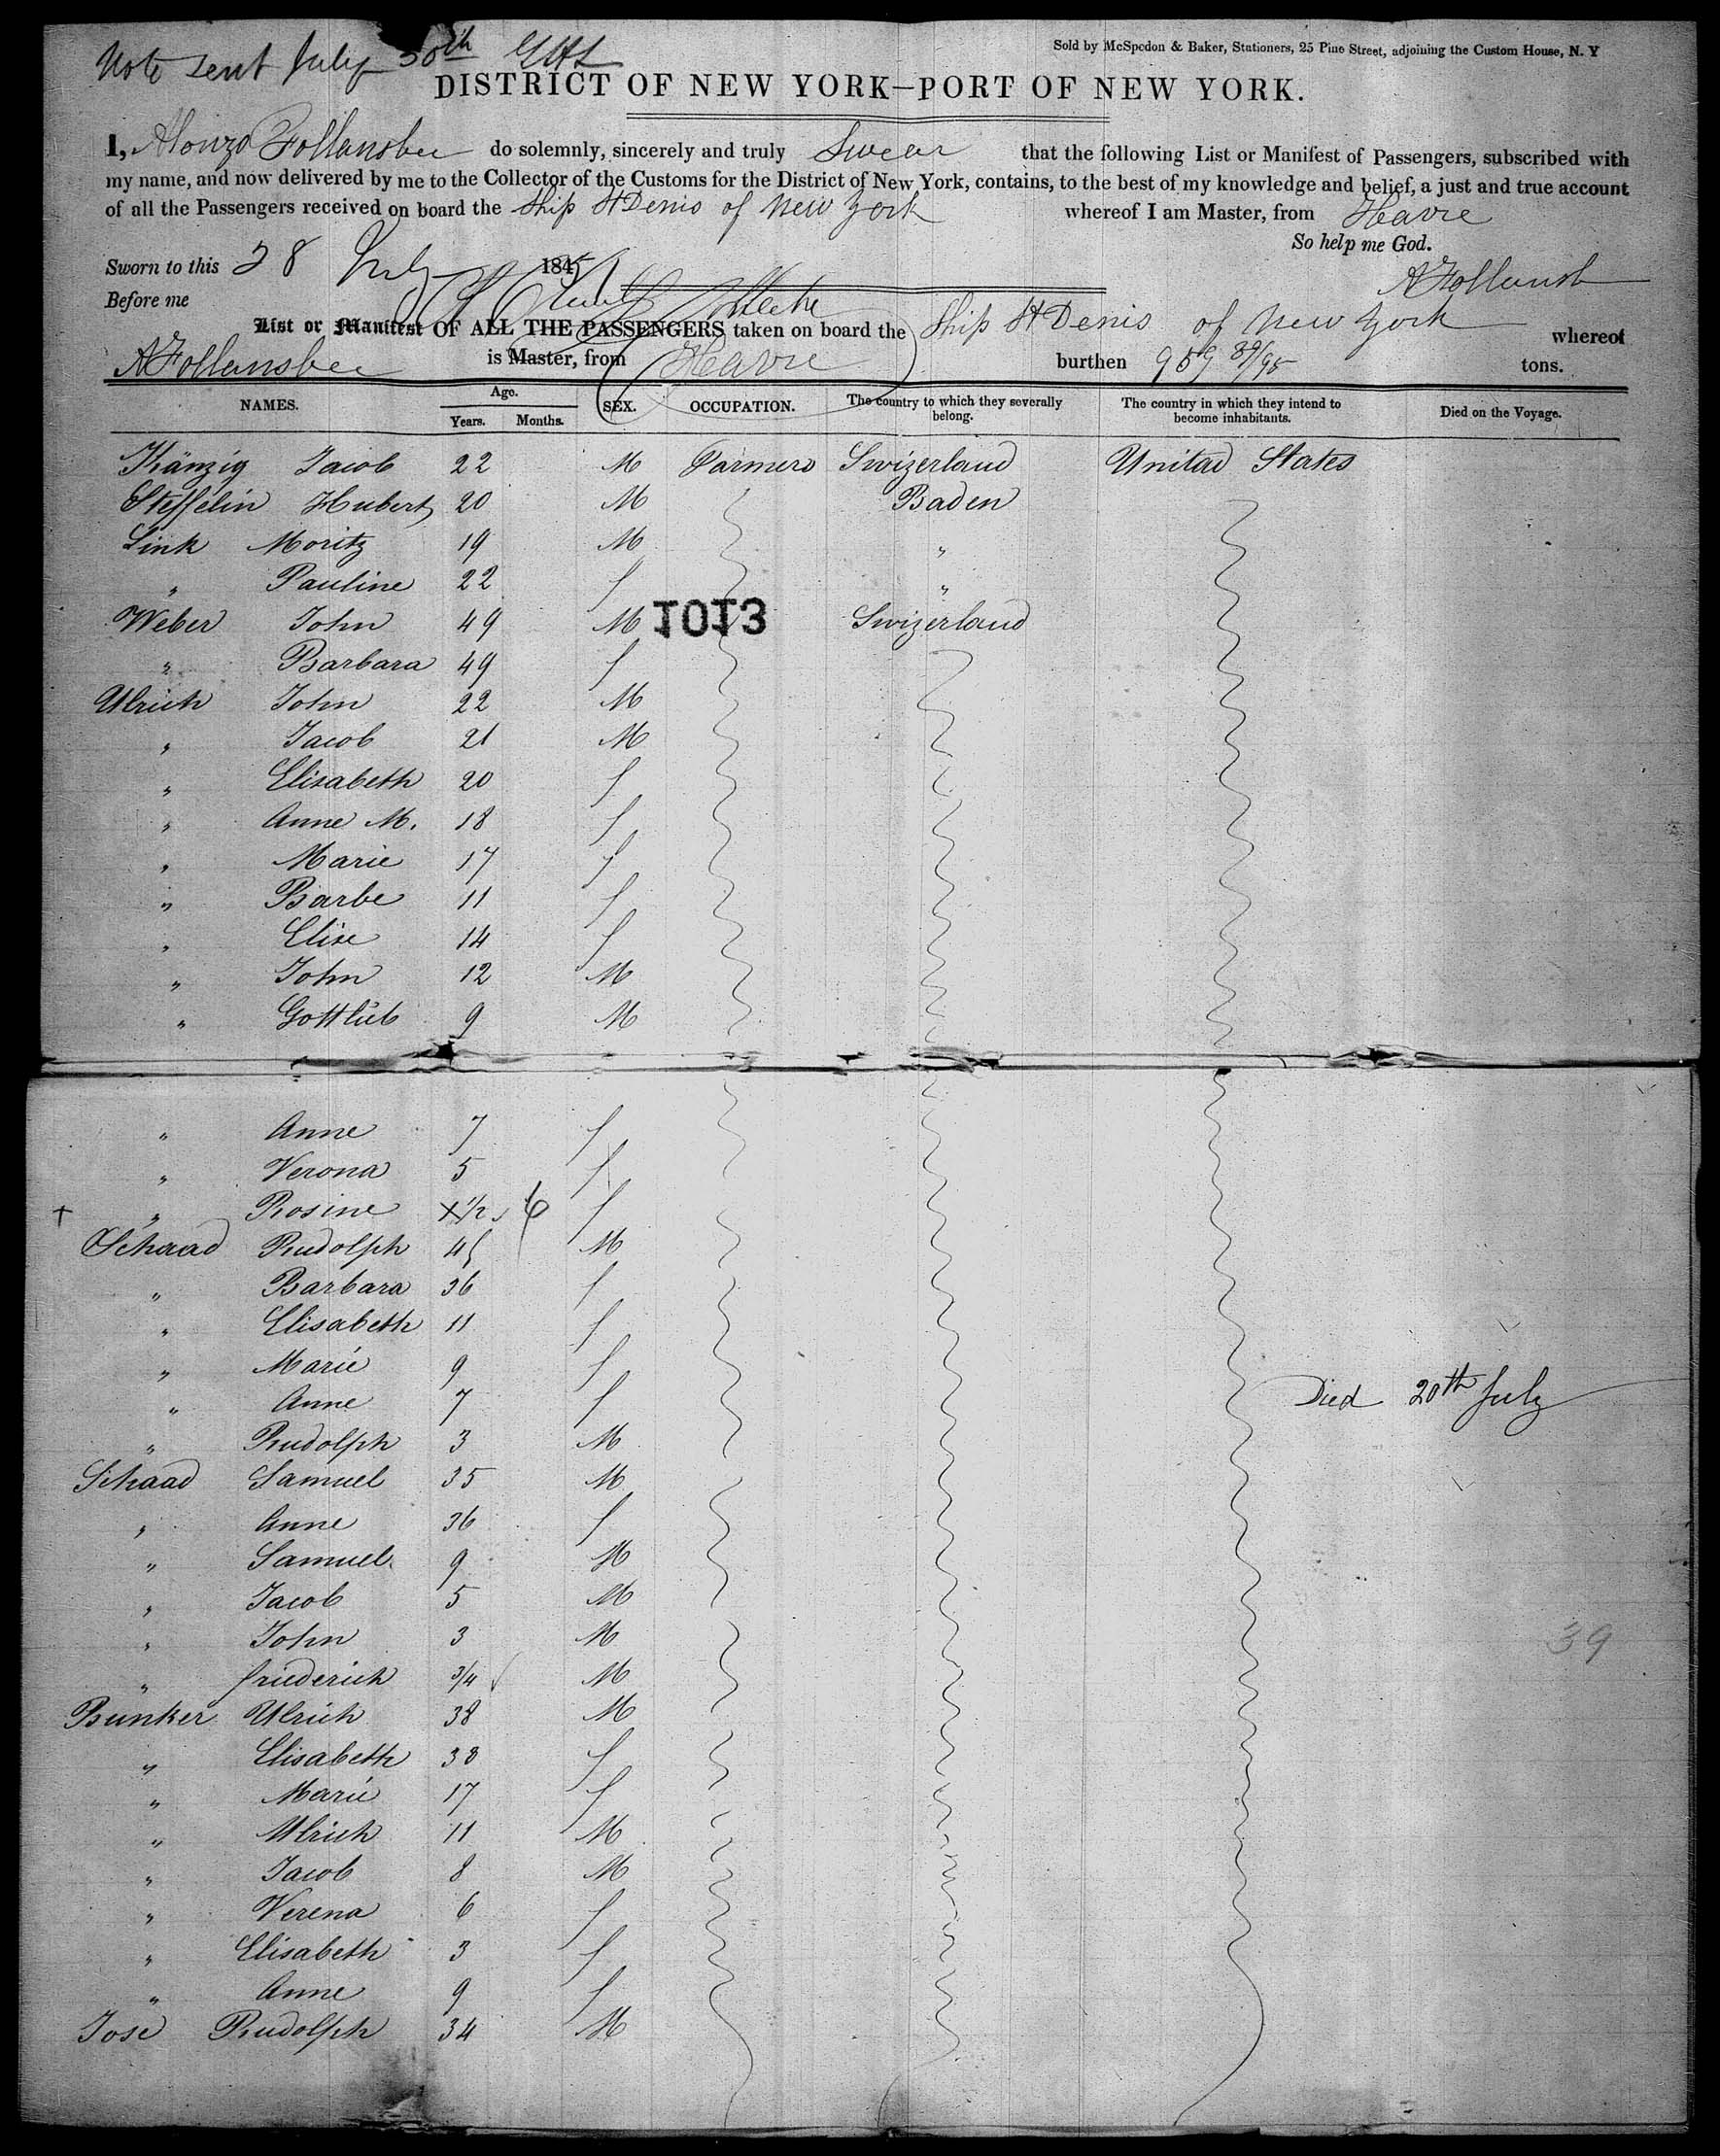 Note sent July 30th
Sold by McSpedon & Baker, Stationers, 25 Pine Street, adjoining the Custom House, N. Y
DISTRICT OF NEW YORK—PORT OF NEW YORK.
I, Alonzo Follansbee do solemnly, sincerely and truly Swear that the following List or Manifest of Passengers, subscribed with
my name, and now delivered by me to the Collector of the Customs for the District of New York, contains, to the best of my knowledge and belief, a just and true account
of all the Passengers received on board the Ship St Denis of New York whereof I am Master, from Havre
So help me God.
Sworn to this 28 July 184
A Follansb
Before me
List or Manifest OF ALL THE PASSENGERS taken on board the Ship St Denis of New York whereof
A Follansbee is Master, from Havre burthen 959 39/95 tons.
NAMES. Age. Years. Months. SEX. OCCUPATION. The country to which they severally belong. The country in which they intend to become inhabitants. Died on the Voyage.
Känzig Jacob 22 M Farmers Swizerland Unitad States
Steffelin Hubert 20 M Baden
Link Moritz 19 M "
" Pauline 22 f "
Weber John 49 M 1013 Swizerland
" Barbara 49 f
Ulrich John 22 M
" Jacob 21 M
" Elisabeth 20 f
" Anne M. 18 f
" Marie 17 f
" Barbe 11 f
" Elise 14 f
" John 12 M
" Gottlieb 9 M
" Anne 7 f
" Verona 5 f
† " Rosine X 1/2 6 f
Schaad Rudolph 45 M
" Barbara 36 f
" Elisabeth 11 f
" Marie 9 f
" Anne 7 f Died 20th July
" Rudolph 3 M
Schaad Samuel 35 M
" Anne 36 f
" Samuel 9 M
" Jacob 5 M
" John 3 M
39
" friederich 3/4 M
Bunker Ulrich 38 M
" Elisabeth 38 f
" Marie 17 f
" Ulrich 11 M
" Jacob 8 M
" Verena 6 f
" Elisabeth 3 f
" Anne 9 f
Jose Rudolph 34 M